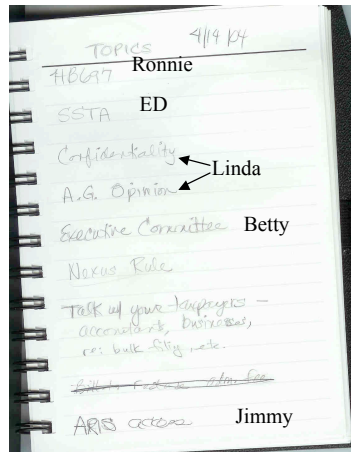 TOPICS 4/19/04
HB697 Ronnie
SSTA ED
Confidentiality
Linda
A.G. Opinion
Executive Committee Betty
Nexus Rule
Talk w/ your taxpayers –
accountants, businesses,
re: bulk filing, etc.
adm. fee
ARIS access Jimmy